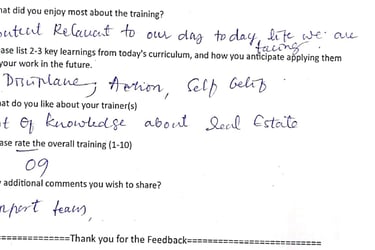 hat did you enjoy most about the training?
ntent Relavent to our day today life we are
facing
ase list 2-3 key learnings from today's curriculum, and how you anticipate applying them
your work in the future.
Action, Self
hat do you like about your trainer(s)
t of knowledge about Real Estate
ase rate the overall training (1-10)
09
additional comments you wish to share?
team,
=============Thank you for the Feedback=========================